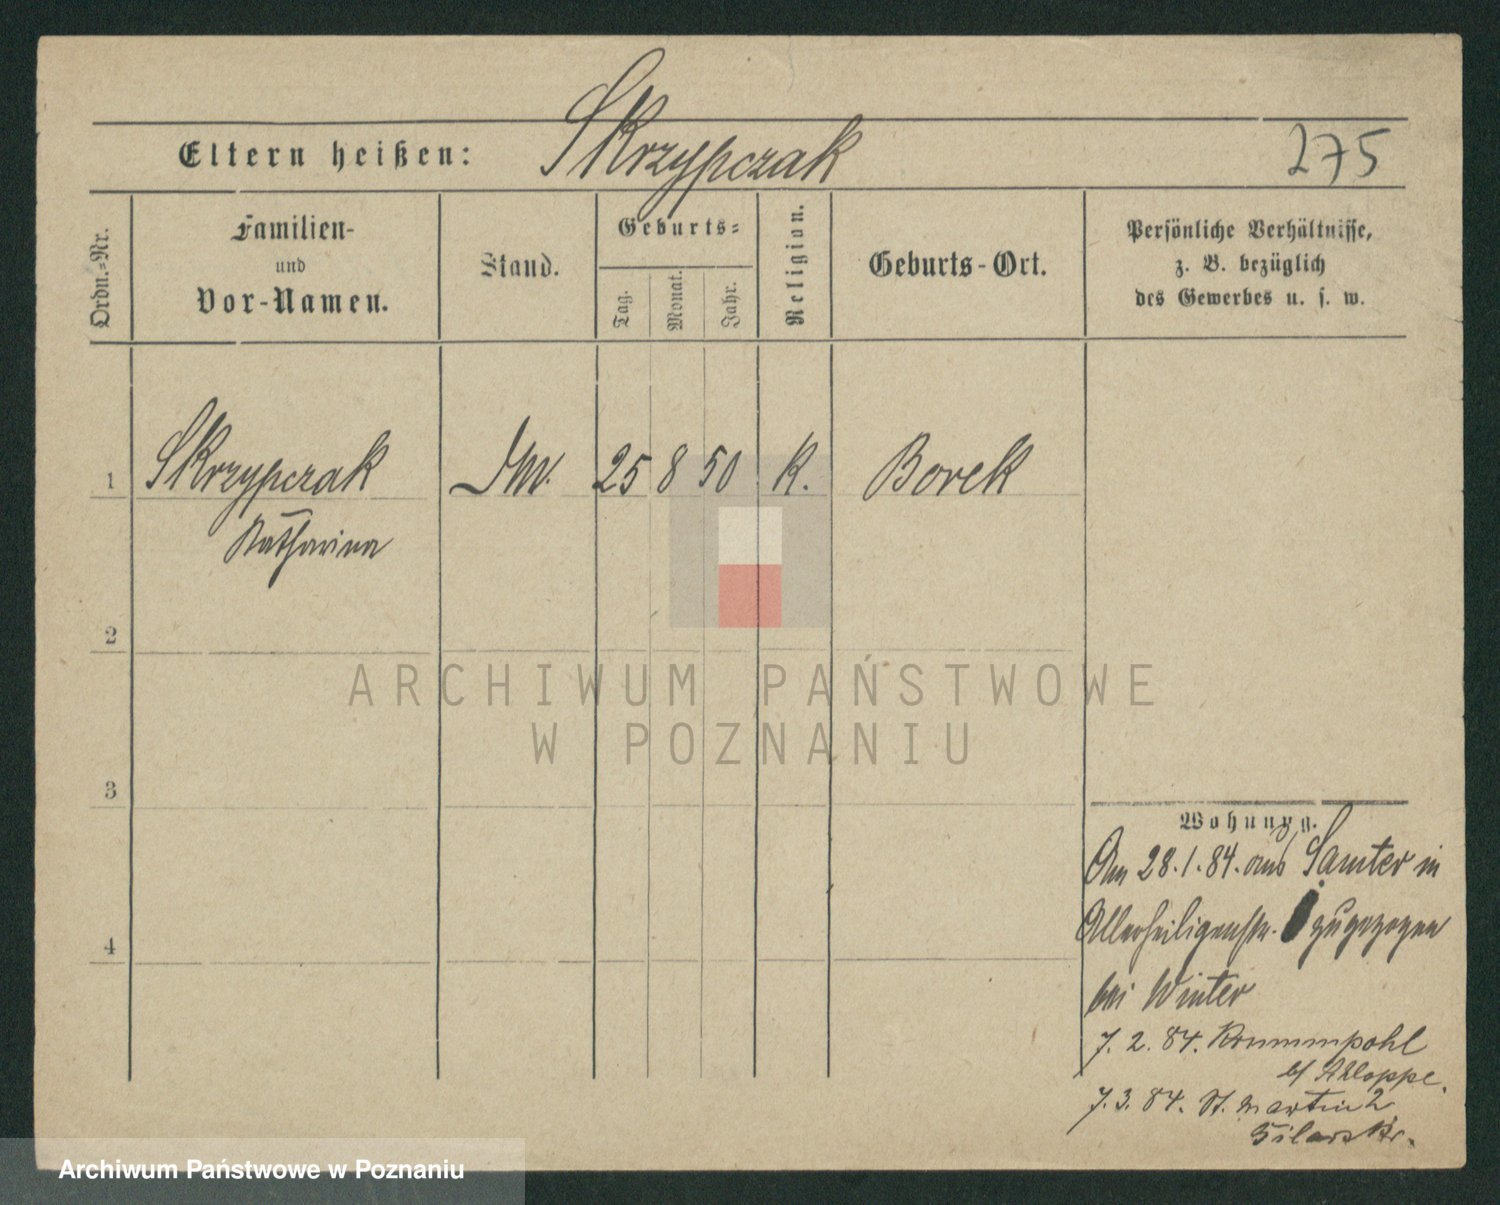 Eltern heißen: Skrzypczak 275
Ordn.-Nr.
Familien-
und
Vor-Namen.
Stand.
Geburts-
Tag.
Monat.
Jahr.
Religion.
Geburts-Ort.
Persönliche Verhältnisse,
z. B. bezüglich
des Gewerbes u. s. w.
1 Skrzypczak 25 8 50 K. Borek
Katharina
2
3
4
Wohnung.
Am 28.1.84. aus Samter in
Allerheiligenstr. zugezogen
bei Winter
7. 2. 84. Krummpohl
b/ Kloppe.
7. 3. 84. St. Martin 2
ARCHIWUM PAŃSTWOWE
W POZNANIU
Archiwum Państwowe w Poznaniu